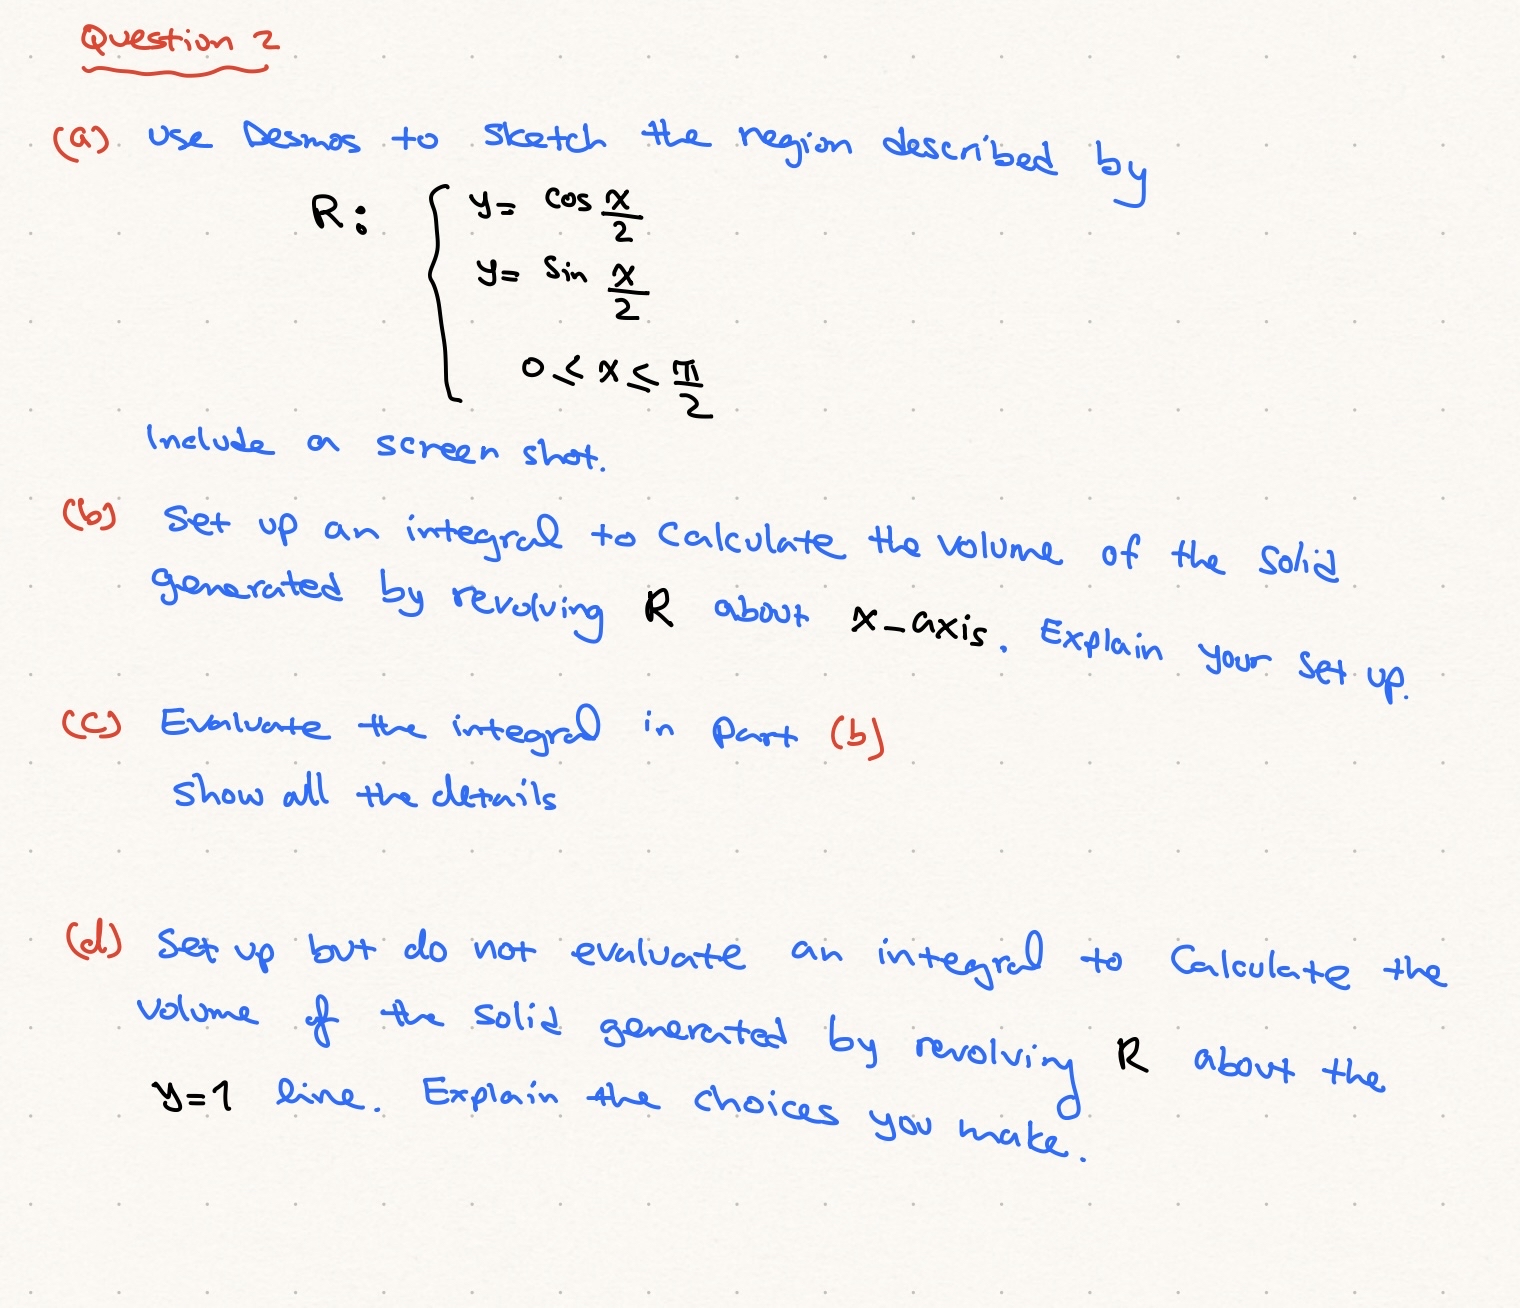 Question 2
(a) Use Desmos to sketch the region described by
R: { y = cos x/2
y = sin x/2
0 ≤ x ≤ π/2
Include a screen shot.
(b) Set up an integral to calculate the volume of the solid
generated by revolving R about x-axis. Explain your set up.
(c) Evaluate the integral in part (b)
show all the details
(d) Set up but do not evaluate an integral to calculate the
volume of the solid generated by revolving R about the
y=1 line. Explain the choices you make.